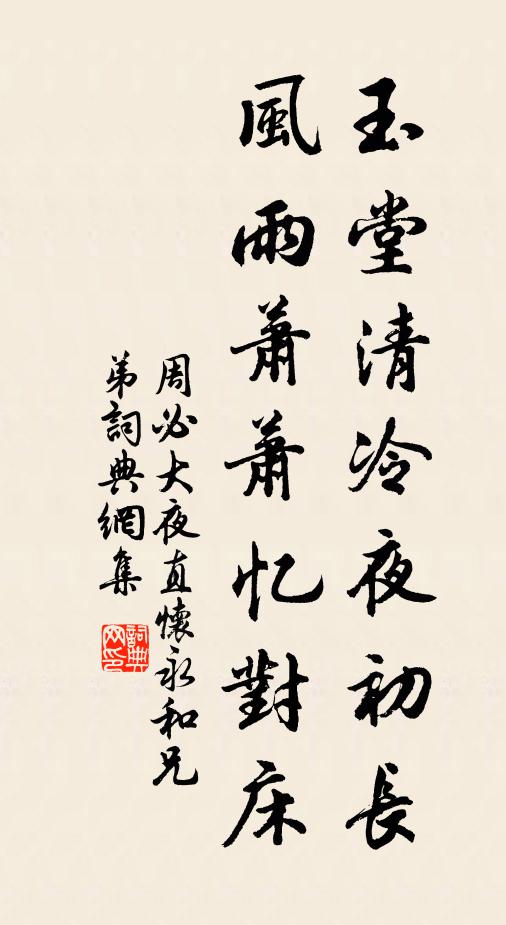 玉堂清冷夜初長
風雨蕭蕭忆對床
周必大夜直懷永和兄
弟詞典網集
詞典
网印